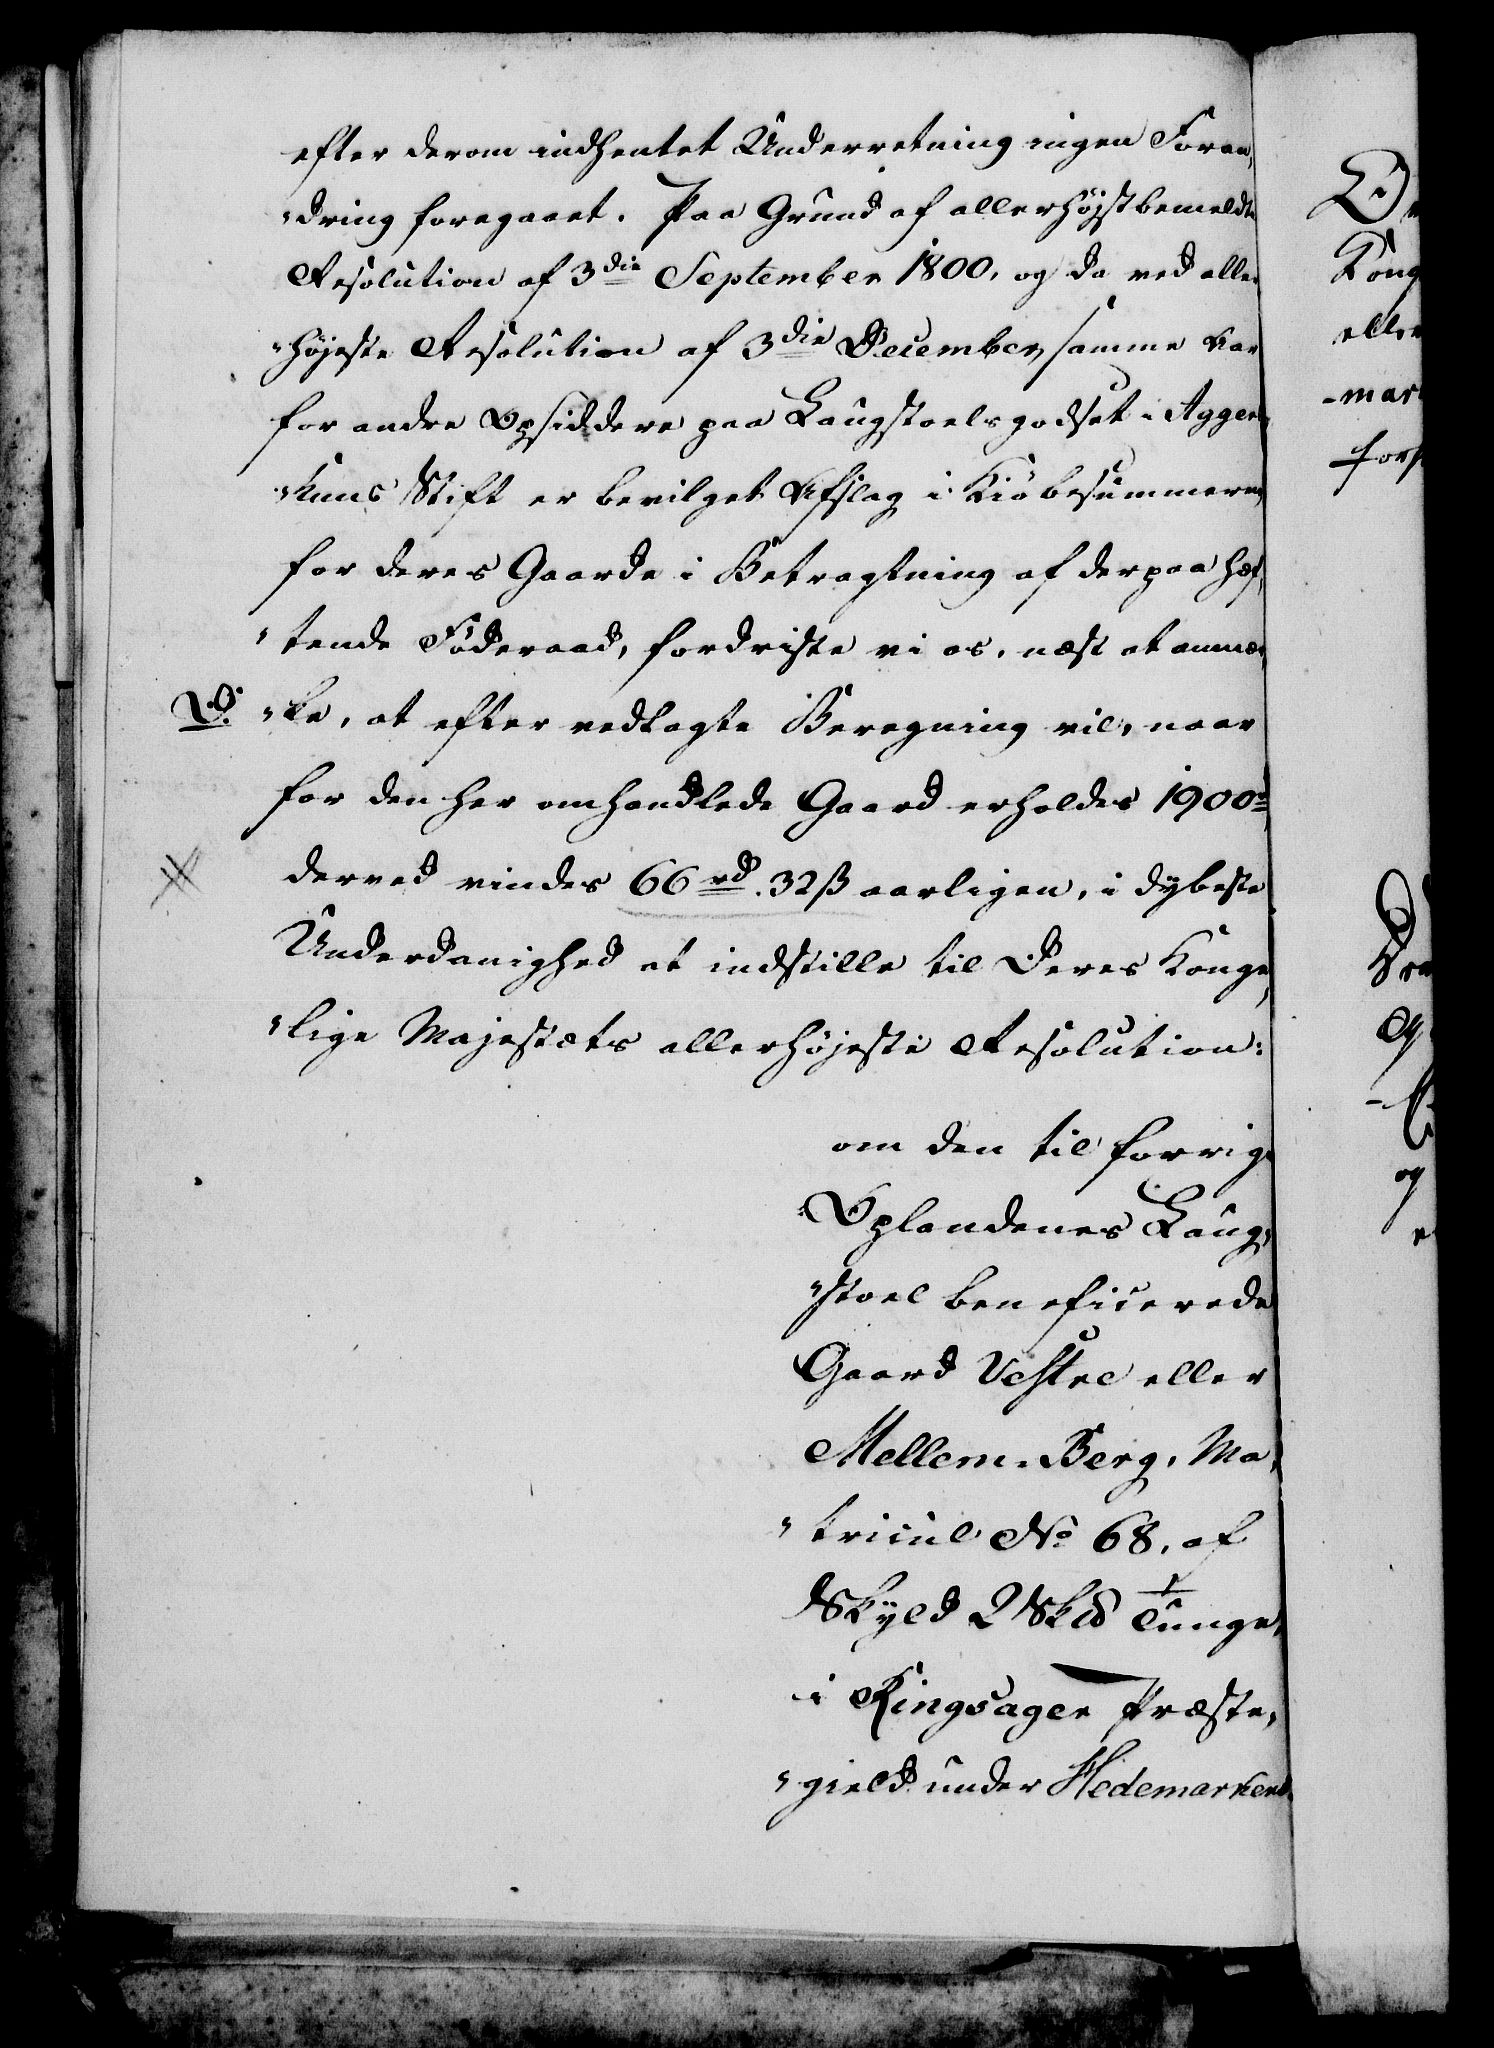 efter derom indhentet Underretning ingen Foran,
"dring foregaaet. Paa Grund af allerhøjstbemeldte
Resolution af 3die September 1800, og da ved aller
"højeste Resolution af 3die December samme Aar
for andre Opsiddere paa Laugstoelsgodset i Agger,
"huus Stift er bevilget Afslag i Kiøbesummerne
for deres Gaarde i Betragtning af derpaa hæf,
"tende Föderaad, fordriste vi os, næst at anmær,
D. "ke, at efter vedlagte Beregning vil, naar
for den her omhandlede Gaard erholdes 1900rd,
derved vindes 66rd. 32ß aarligen, i dybeste
Underdanighed at indstille til Deres Konge,
"lige Majestæts allerhøjeste Resolution:
om den til forrige
Oplandenes Laug,
"stoel beneficerede
Gaard Vestre eller
Mellem-Berg, Ma,
"tricul No 68, af
Skyld 2 Sk℔ Tunge,
i Ringsager Præste,
"gield under Hedemarkens